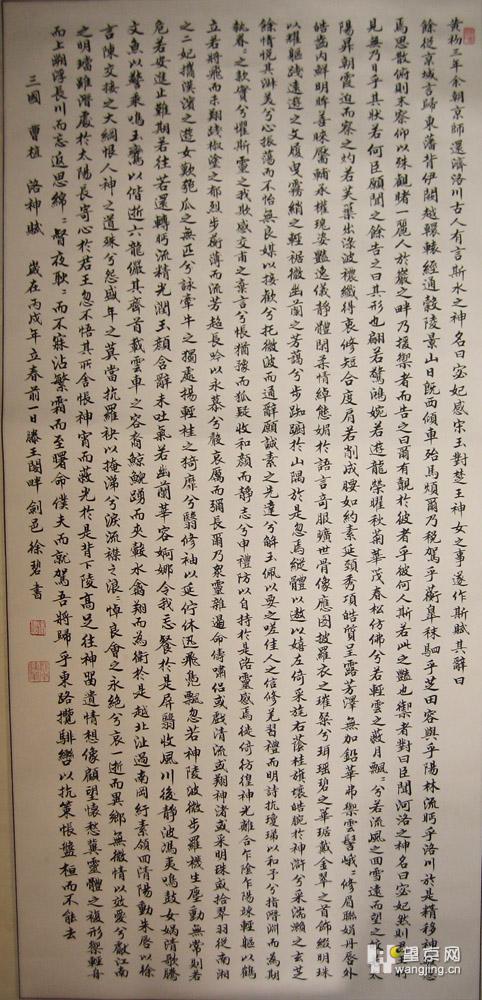 黃初三年余朝京師還濟洛川古人有言斯水之神名曰宓妃感宋玉對楚王神女之事遂作斯賦其辭曰
餘從京域言歸東藩背伊闕越轘轅經通轂陵景山日既西傾車殆馬煩爾乃稅駕乎蘅皋秣駟乎芝田容與乎陽林流眄乎洛川於是精移神駭忽
焉思散俯則未察仰以殊觀睹一麗人於巖之畔乃援御者而告之曰爾有覿於彼者乎彼何人斯若此之艷也御者對曰臣聞河洛之神名曰宓妃然則君王所
見無乃日乎其狀若何臣願聞之餘告之曰其形也翩若驚鴻婉若遊龍榮曜秋菊華茂春松仿佛兮若輕雲之蔽月飄飄兮若流風之回雪遠而望之皎若太
陽昇朝霞迫而察之灼若芙蕖出淥波襛纖得衷修短合度肩若削成腰如約素延頸秀項皓質呈露芳澤無加鉛華弗御雲髻峨峨修眉聯娟丹唇外朗
皓齒內鮮明眸善睞靨輔承權瑰姿艷逸儀靜體閑柔情綽態媚於語言奇服曠世骨像應圖披羅衣之璀粲兮珥瑤碧之華琚戴金翠之首飾綴明珠
以耀軀踐遠遊之文履曳霧綃之輕裾微幽蘭之芳藹兮步踟躕於山隅於是忽焉縱體以遨以嬉左倚采旄右蔭桂旗攘皓腕於神滸兮采湍瀨之玄芝
餘情悅其淑美兮心振蕩而不怡無良媒以接歡兮托微波而通辭願誠素之先達兮解玉佩以要之嗟佳人之信修羌習禮而明詩抗瓊珶以和予兮指潛淵而為期
執眷眷之款實兮懼斯靈之我欺感交甫之棄言兮悵猶豫而狐疑收和顏而靜志兮申禮防以自持於是洛靈感焉徙倚彷徨神光離合乍陰乍陽竦輕軀以鶴
立若將飛而未翔踐椒塗之郁烈步蘅薄而流芳超長吟以永慕兮聲哀厲而彌長爾乃眾靈雜遝命儔嘯侶或戲清流或翔神渚或采明珠或拾翠羽從南湘
之二妃攜漢濱之遊女歎匏瓜之無匹兮詠牽牛之獨處揚輕袿之猗靡兮翳修袖以延佇休迅飛鳧飄忽若神陵波微步羅襪生塵動無常則若
危若安進止難期若往若還轉眄流精光潤玉顏含辭未吐氣若幽蘭華容婀娜令我忘餐於是屏翳收風川後靜波馮夷鳴鼓女媧清歌騰
文魚以警乘鳴玉鸞以偕逝六龍儼其齊首載雲車之容裔鯨鯢踴而夾轂水禽翔而為衛於是越北沚過南岡紆素領回清陽動朱唇以徐
言陳交接之大綱恨人神之道殊兮怨盛年之莫當抗羅袂以掩涕兮淚流襟之浪浪悼良會之永絕兮哀一逝而異鄉無微情以效愛兮獻江南
之明璫雖潛處於太陽長寄心於君王忽不悟其所舍悵神宵而蔽光於是背下陵高足往神留遺情想像顧望懷愁冀靈體之復形御輕舟
而上溯浮長川而忘返思綿綿而增慕夜耿耿而不寐沾繁霜而至曙命僕夫而就駕吾將歸乎東路攬騑轡以抗策悵盤桓而不能去
三國 曹植 洛神賦 歲在丙戌年立春前一日滕王閣畔劍邑徐碧書
望京网
wangjing.cn